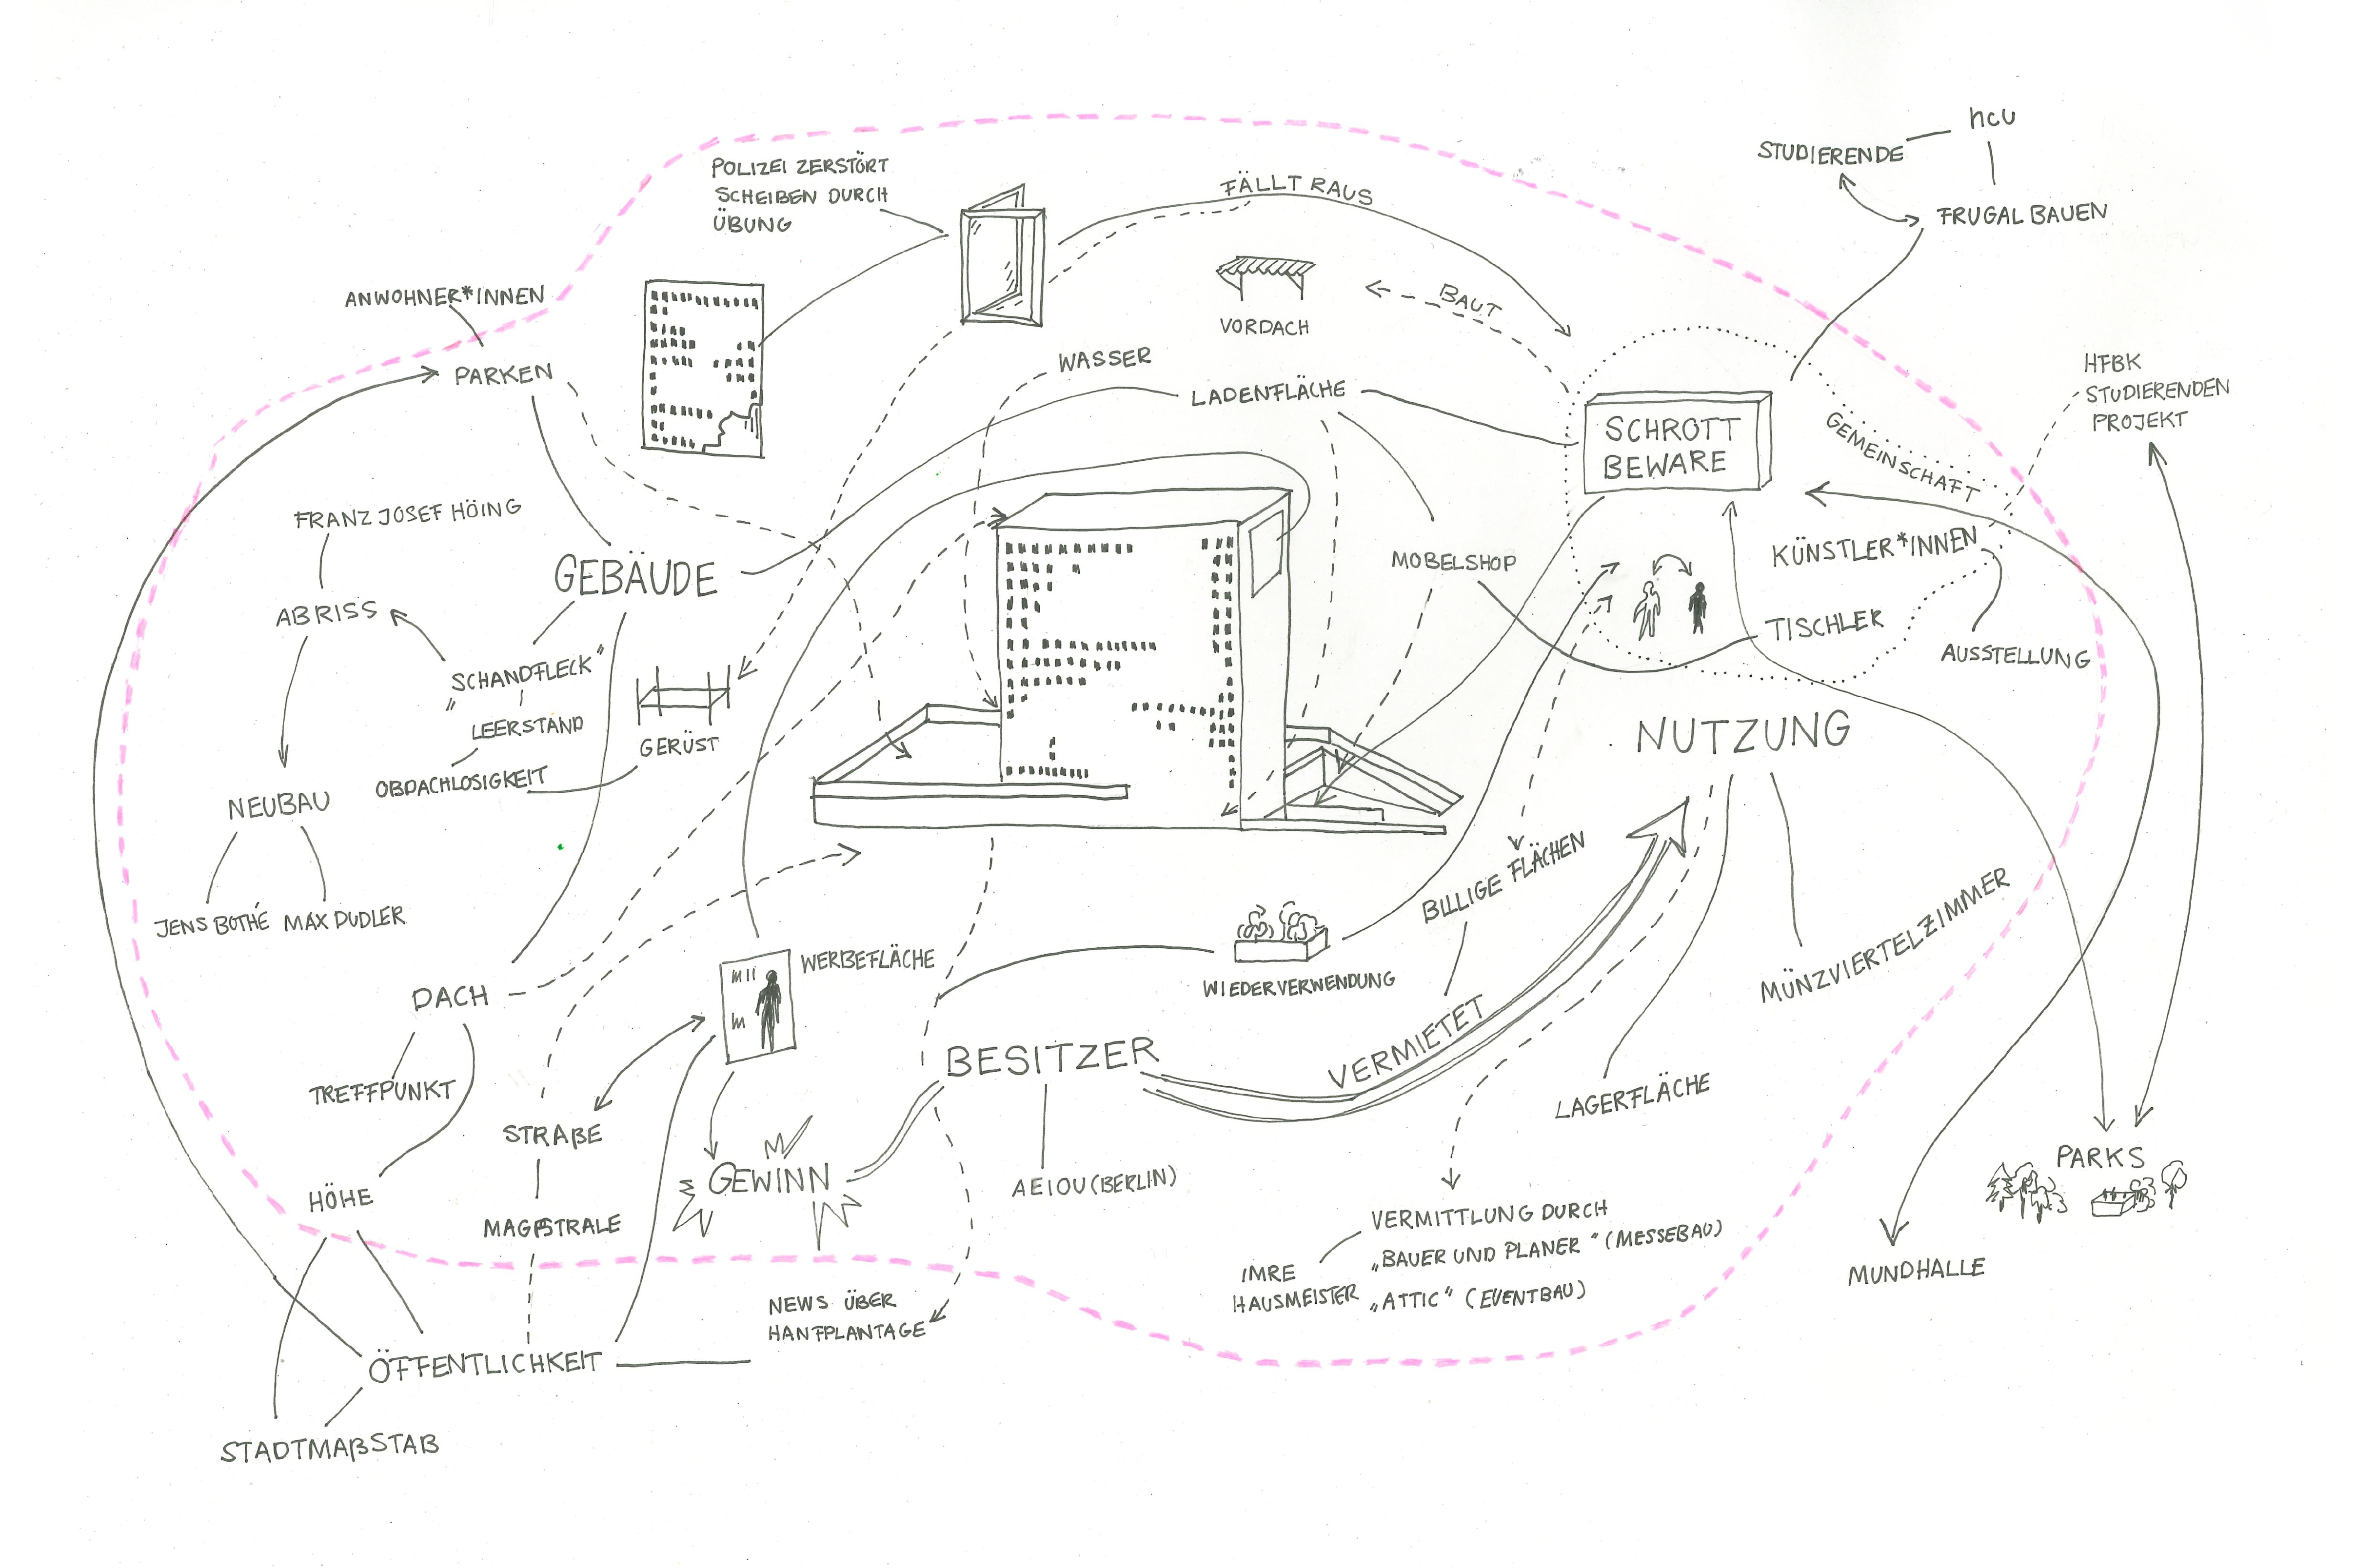 hcu
STUDIERENDE
FRUGAL BAUEN
POLIZEI ZERSTÖRT
SCHEIBEN DURCH
ÜBUNG
FÄLLT RAUS
ANWOHNER*INNEN
BAUT
VORDACH
WASSER
PARKEN
LADENFLÄCHE
HFBK
STUDIERENDEN
PROJEKT
SCHROTT
BEWARE
GEMEINSCHAFT
FRANZ JOSEF HÖING
GEBÄUDE
MOBELSHOP
KÜNSTLER*INNEN
ABRISS
TISCHLER
AUSSTELLUNG
„SCHANDFLECK“
LEERSTAND
GERÜST
OBDACHLOSIGKEIT
NUTZUNG
NEUBAU
JENS BOTHE
MAX DUDLER
BILLIGE FLÄCHEN
MÜNZVIERTELZIMMER
WERBEFLÄCHE
WIEDERVERWENDUNG
DACH
BESITZER
VERMIETET
TREFFPUNKT
LAGERFLÄCHE
STRAßE
GEWINN
AEIOU (BERLIN)
PARKS
HÖHE
MAGISTRALE
VERMITTLUNG DURCH
„BAUER UND PLANER“ (MESSEBAU)
„ATTIC“ (EVENTBAU)
IMRE
HAUSMEISTER
MUNDHALLE
NEWS ÜBER
HANFPLANTAGE
ÖFFENTLICHKEIT
STADTMAßSTAB